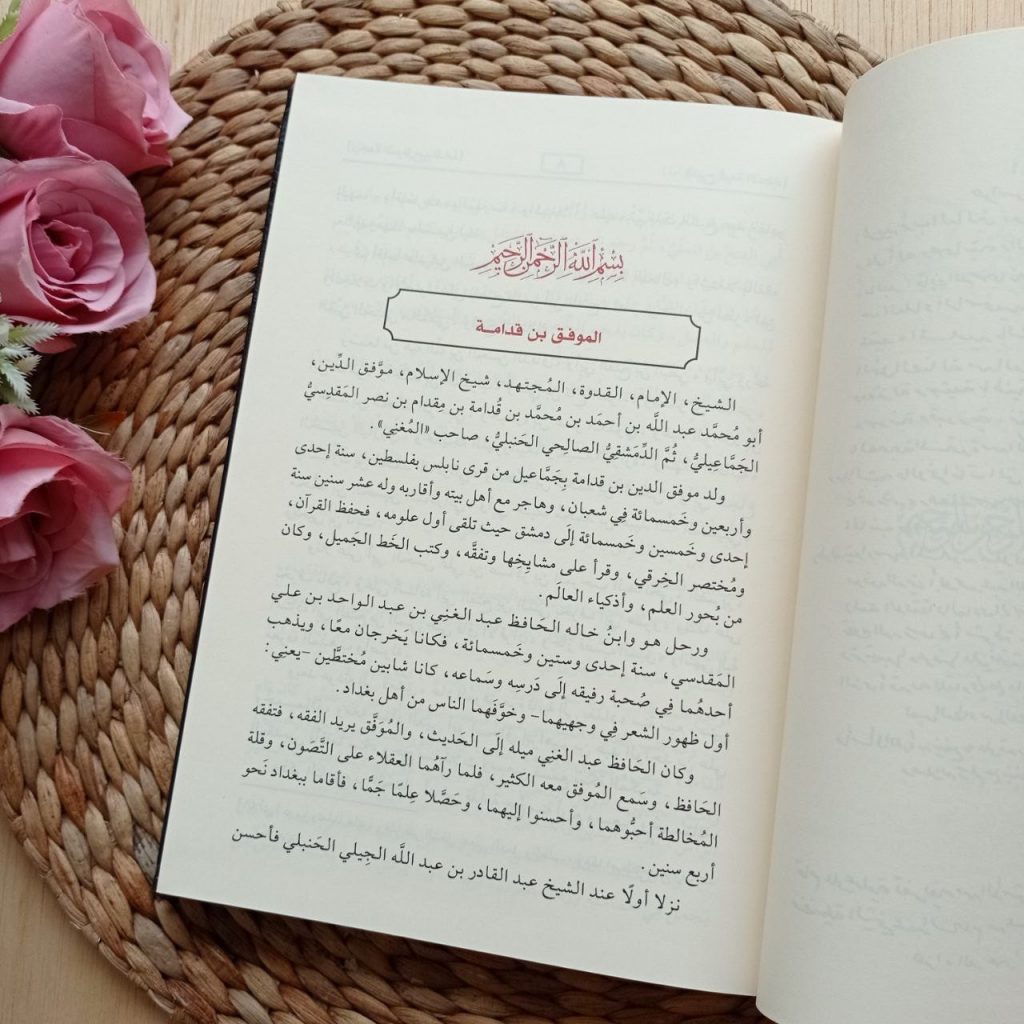 بِسْمِ اللَّهِ الرَّحْمَنِ الرَّحِيمِ
الموفق بن قدامة
الشيخ، الإمام، القدوة، المُجتهد، شيخ الإسلام، موَّفق الدِّين،
أبو مُحمَّد عبد اللَّه بن أحمَد بن مُحمَّد بن قُدامة بن مِقدام بن نصر المَقدِسيُّ
الجَمَّاعِيليُّ، ثُمَّ الدِّمَشقِيُّ الصالحِي الحَنبليُّ، صاحب «المُغني».
ولد موفق الدين بن قدامة بِجَمَّاعيل من قرى نابلس بفلسطين، سنة إحدى
وأربعين وخَمسمائة فِي شعبان، وهاجر مع أهل بيته وأقاربه وله عشر سنين سنة
إحدى وخَمسين وخَمسمائة إلَى دمشق حيث تلقى أول علومه، فحفظ القرآن،
ومُختصر الخِرقي، وقرأ على مشايِخِها وتفقَّه، وكتب الخَط الجَميل، وكان
من بُحور العلم، وأذكياء العالَم.
ورحل هو وابنُ خاله الحَافظ عبد الغنِي بن عبد الواحد بن علي
المَقدسي، سنة إحدى وستين وخَمسمائة، فكانا يَخرجان معًا، ويذهب
أحدهُما فِي صُحبة رفيقه إلَى دَرسِه وسَماعه، كانا شابين مُختطَّين -يعني:
أول ظهور الشعر فِي وجهيهما- وخوَّفَهما الناس من أهل بغداد.
وكان الحَافظ عبد الغني ميله إلَى الحَديث، والمُوَفَّق يريد الفقه، فتفقه
الحَافظ، وسَمع المُوفق معه الكثير، فلما رآهُما العقلاء على التَّصَون، وقلة
المُخالطة أحبُّوهما، وأحسنوا إليهما، وحَصَّلا عِلمًا جَمًّا، فأقاما ببغداد نَحو
أربع سنين.
نزلا أولًا عند الشيخ عبد القادر بن عبد اللَّه الجِيلي الحَنبلي فأحسن